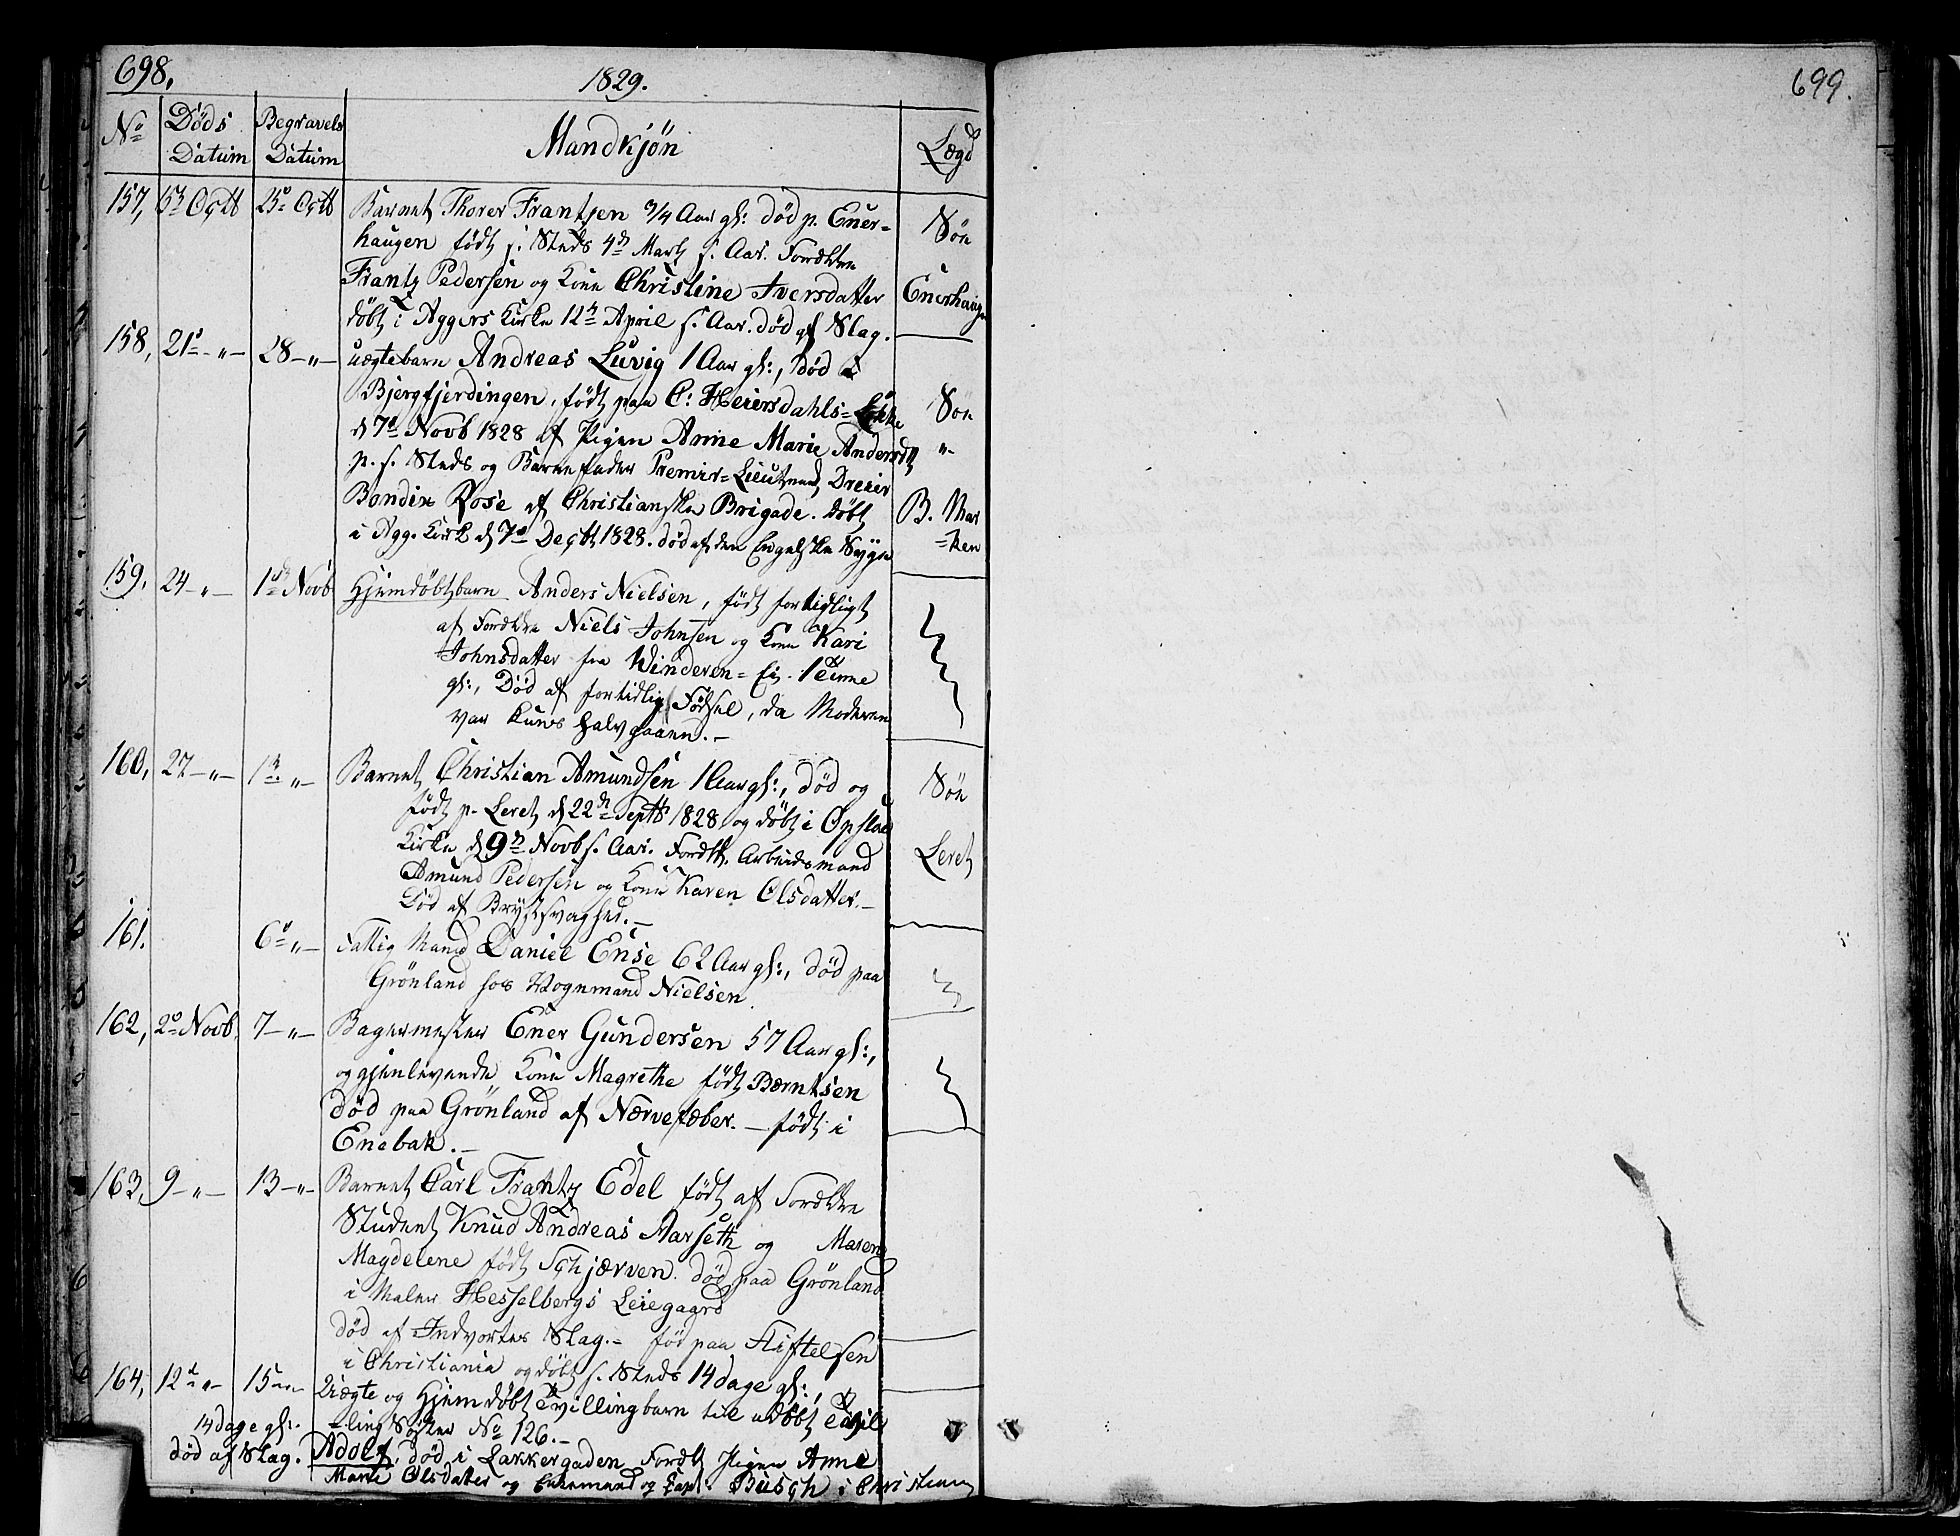 698.
1829.
No Døds Datum Begravels Datum Mandkjøn Lægd
157, 15 Octb 25 Octb Barnet Thorer Frantzen 3/4 Aar gl: død p. Ener=
haugen født s. Steds 4de Marts s. Aar. Forældre
Frantz Pedersen og Kone Christine Iversdatter
døbt i Aggers Kirke 12te April s. Aar. død af Slag.
Søn
Enerhaugen
158, 21 -"- 28 -"- uægtebarn Andreas Luvig 1 Aar gl:, død i
Bjergfjerdingen, født paa C: Heiersdahls=Løkke
d 7de Novb 1828 af Pigen Anne Marie Andersdtt
p. s. Steds og Barnefader Premir=Lieutnand, Dreier
Bondix Rose af Christianske Brigade. døbt
i Agg. Kirke d 7de Decbr 1828. død af den Engelske Syge
Søn
"-
B. Mar
=ken
159, 24 -"- 1 Novb Hjemdøbtbarn Anders Nielsen, født fortidligt
af Forældre Niels Johnsen og Kone Kari
Johnsdatter fra Winderen=Ei. 1 Time
gl:, Død af fortidlig Fødsel, da Moderen
var kuns halv gaaen.-
160, 27 -"- 1 -"- Barnet Christian Amundsen 1 Aar gl:, død og
født p. Leret d 22de Septb 1828 og døbt i Opsloe
Kirke d 9de Novb s. Aar. Fordtt. Arbeidsmand
Amund Pedersen og Kone Karen Olsdatter.-
Død af Brystsvaghed.-
Søn
Leret
161. 6 -"- Fattig Mand Daniel Ense 62 Aar gl:, død paa
Grønland hos Vognmand Nielsen.
162, 2 Novb. 7 -"- Bagermester Ener Gundersen 57 Aar gl:,
og gjenlevende Kone Magrethe født Bærntsen
død paa Grønland af Nærvefæber.- født i
Enebak.-
163, 9 -"- 13 -"- Barnet Carl Frantz Edel født af Forældre
Student Knud Andreas Aarseth og Maren
Magdelene født Schjærven. død paa Grønland
i Maler Hesselbergs Leiegaard
død af Indvortes Slag.- fød paa Stiftelsen
i Christiania og døbt s. Steds 14 dage gl:,
164, 12 -"- 15 -"- Uægte og Hjemdøbt Tvillingbarn til udøbt Tvil
=ling Søster No 126.-
14 dage gl:
død af Slag. Adolf, død i Lakkergaden Fordtt Pigen Anne
Marie Olsdatter og Enkemand og Capt. Busch i Christiania
699.